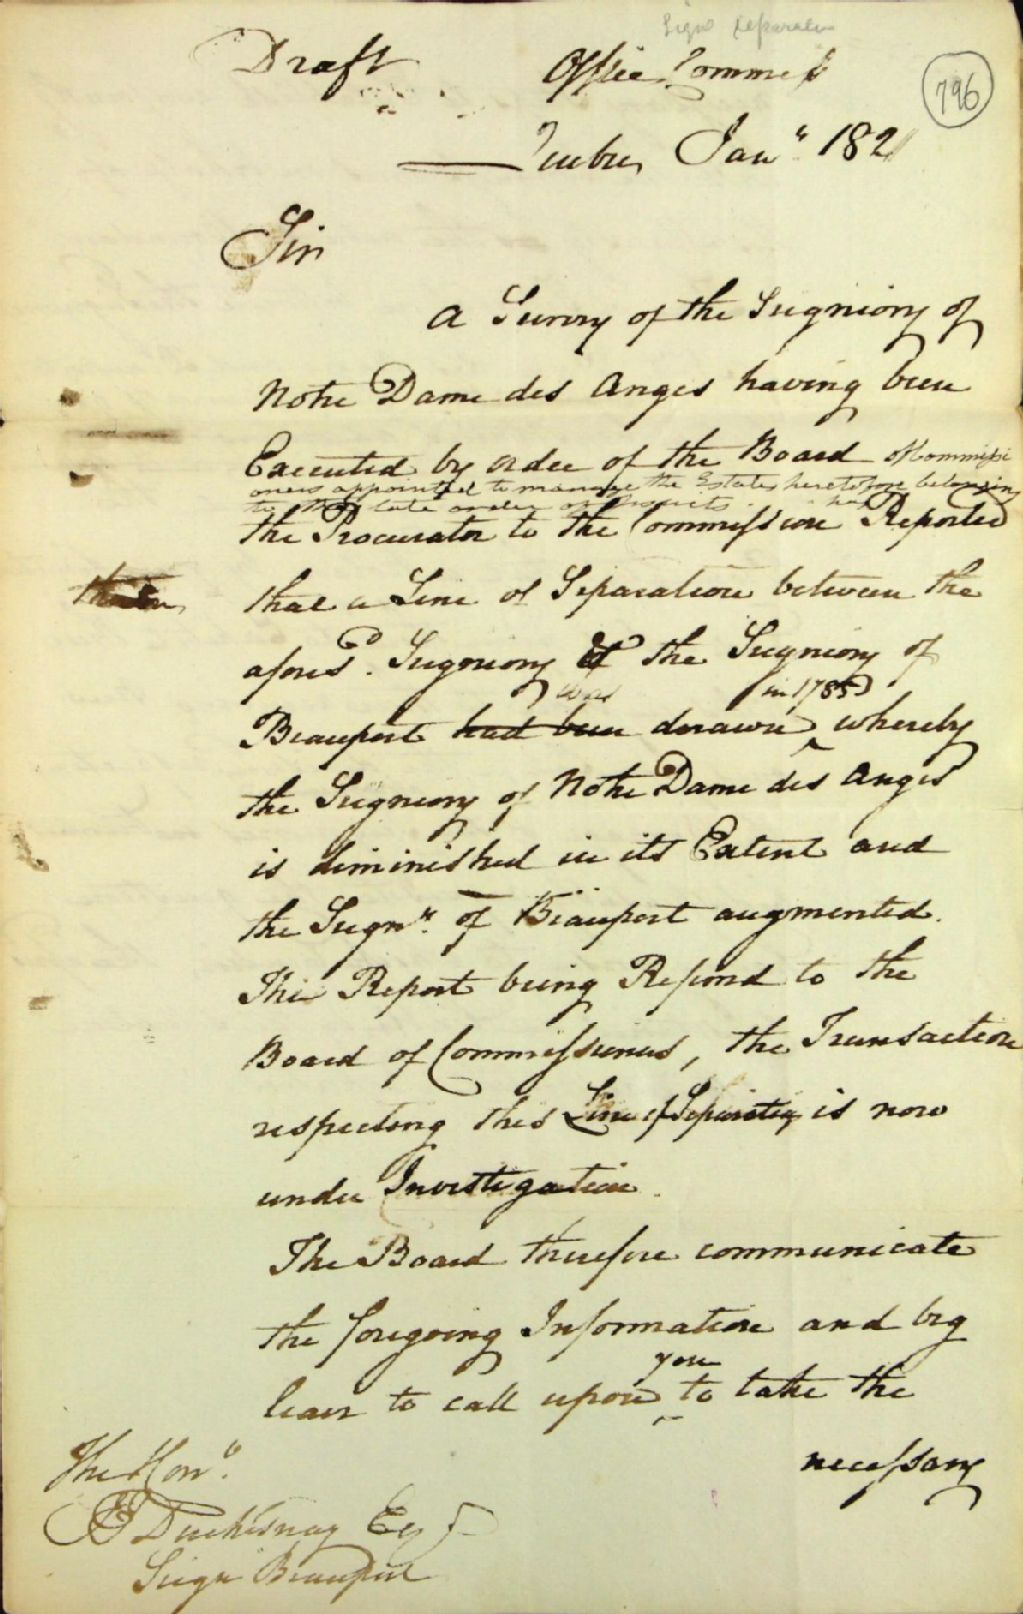 Draft
Office Commis
796
Quebec Jany. 1821
Sir
A Survey of the Seigniory of
Notre Dame des Anges having been
Executed by order of the Board of Commissi
oners appointed to manage the Estates heretofore belonging
to the late order of Jesuits has
the Procurator to the Commission Reported
that a Line of Separation between the
aforesd. Seigniory & the Seigniory of
was in 1785
Beauport had been drawn whereby
the Seigniory of Notre Dame des Anges
is diminished in its Extent and
the Seigny. of Beauport augmented.
This Report being Refered to the
Board of Commissioners, the Transaction
respecting this Line of Separation is now
under Investigation.
The Board therefore communicate
the foregoing Information and beg
you
leave to call upon to take the
necessary
The Honb.
Duchesnay Esqr
Seigr Beauport